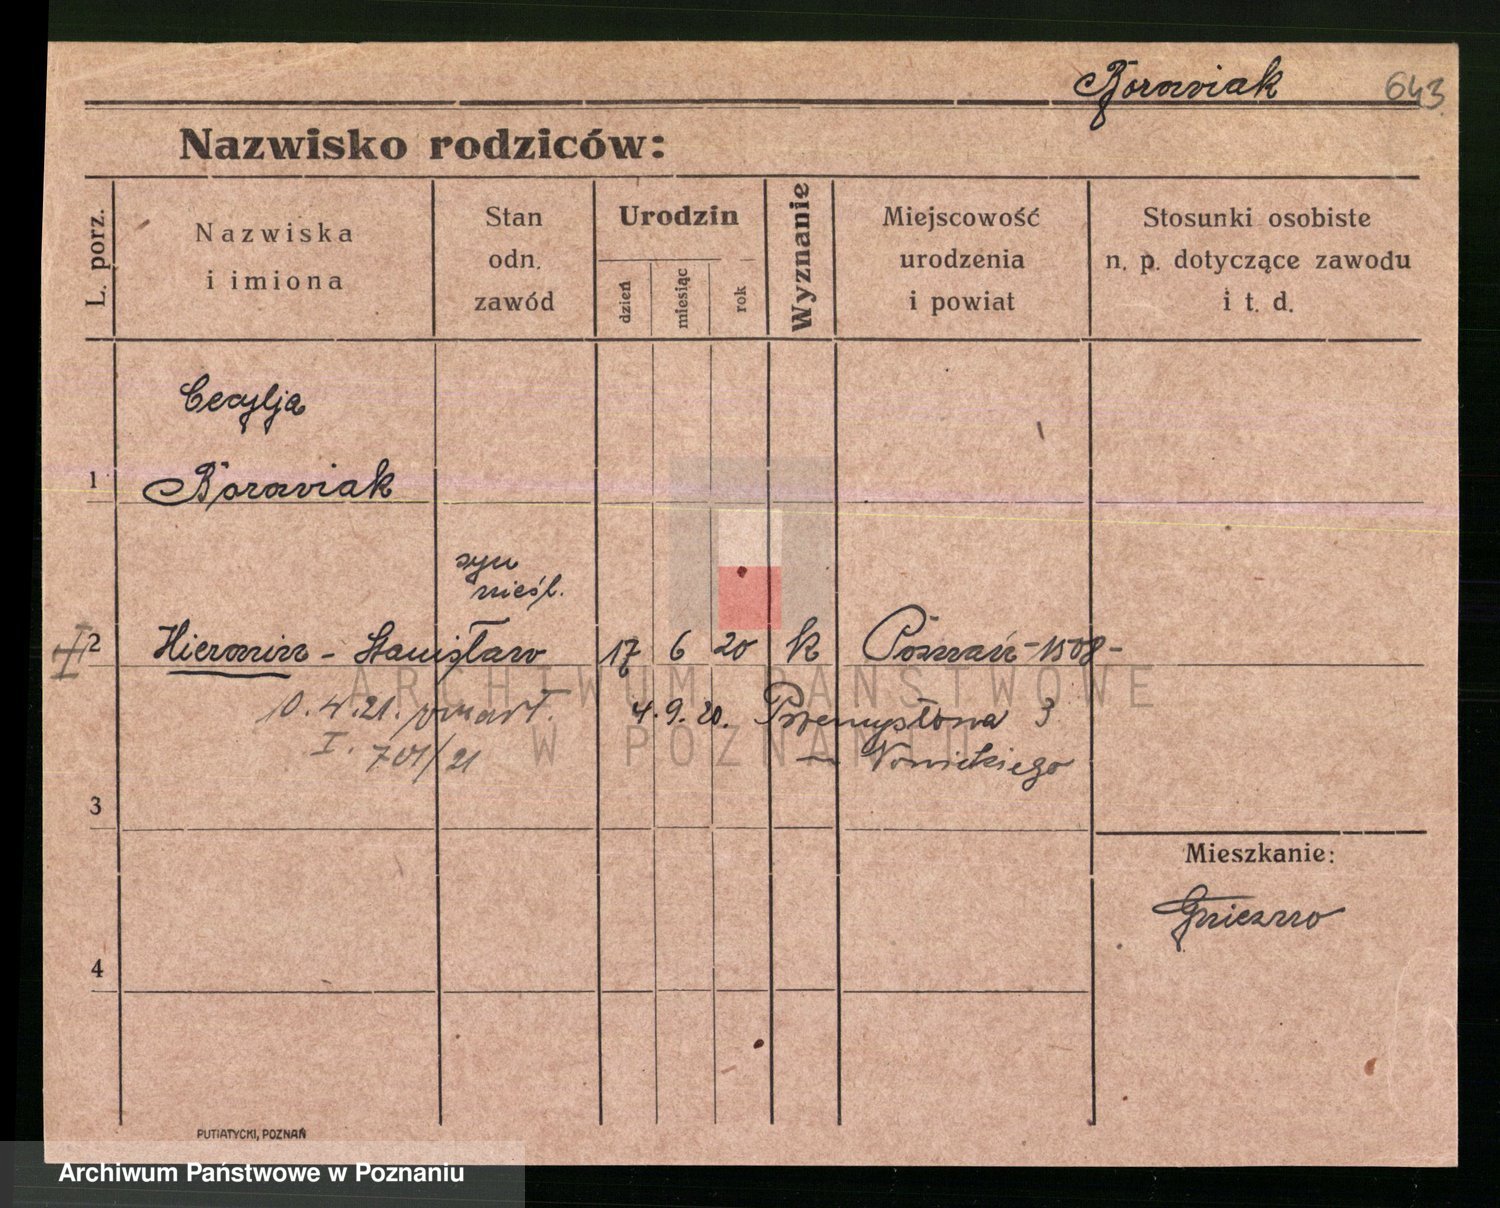 Borowiak 643
Nazwisko rodziców:
L. porz.
Nazwiska
i imiona
Stan
odn.
zawód
Urodzin
dzień
miesiąc
rok
Wyznanie
Miejscowość
urodzenia
i powiat
Stosunki osobiste
n. p. dotyczące zawodu
i t. d.
Cecylja
1 Borowiak
syn
nieśl.
2 Hieronim - Stanisław 17 6 20 k Poznań - 1508 -
ARCHIWUM PAŃSTWOWE
10.4.21. zmarł. 4.9.20. Przemysłowa 3
W POZNANIU
I. 701/21 Nowickiego
3
Mieszkanie:
Gniezno
4
PUTIATYCKI, POZNAŃ
Archiwum Państwowe w Poznaniu